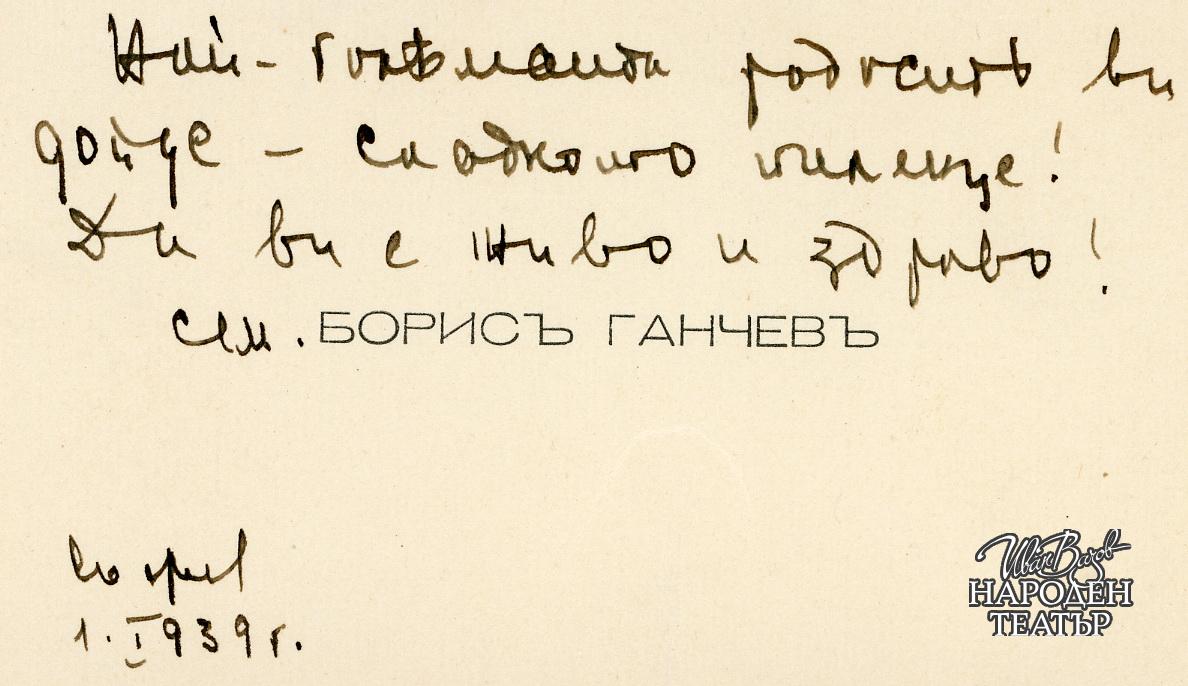 Най-голѣмата радость ви
дойде - сладкото пиленце!
Да ви е живо и здраво!
сем. БОРИСЪ ГАНЧЕВЪ
София
1. I 939 г.
Иван Вазов
НАРОДЕН
ТЕАТЪР